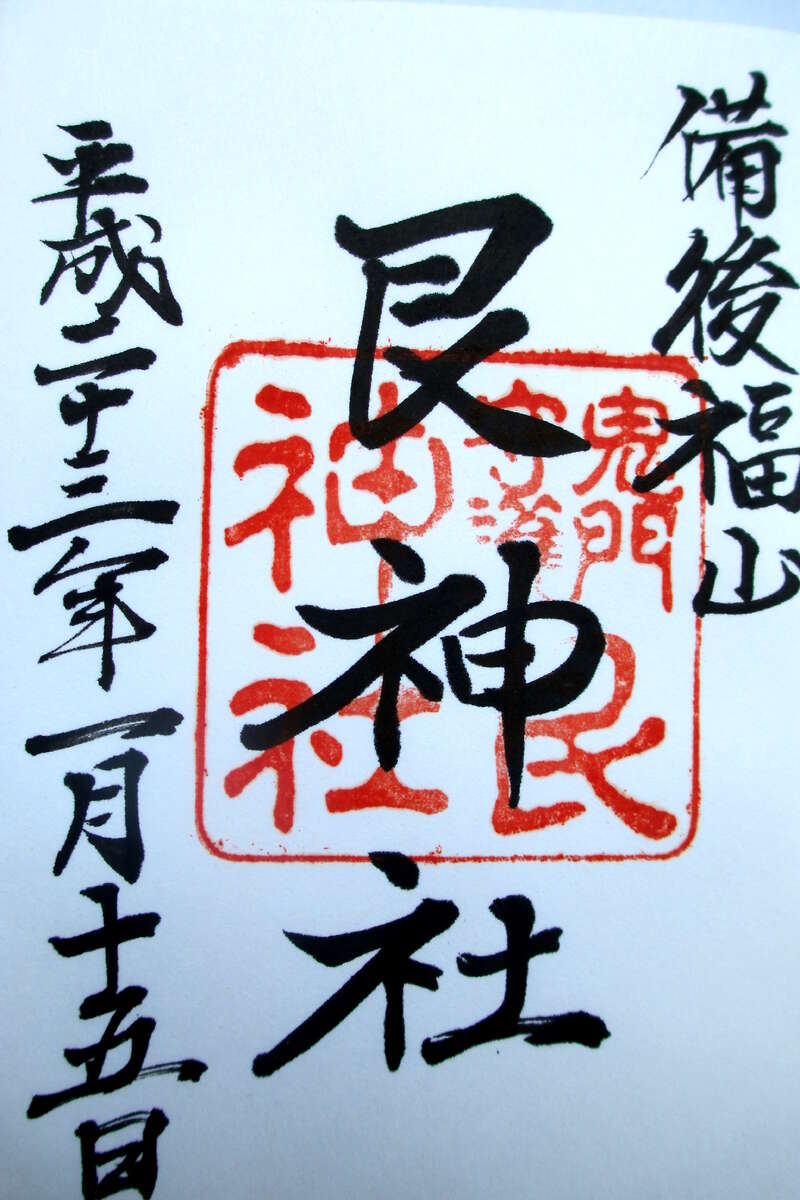 備後福山
艮神社
鬼門
守護
艮
神社
平成二十三年一月十五日